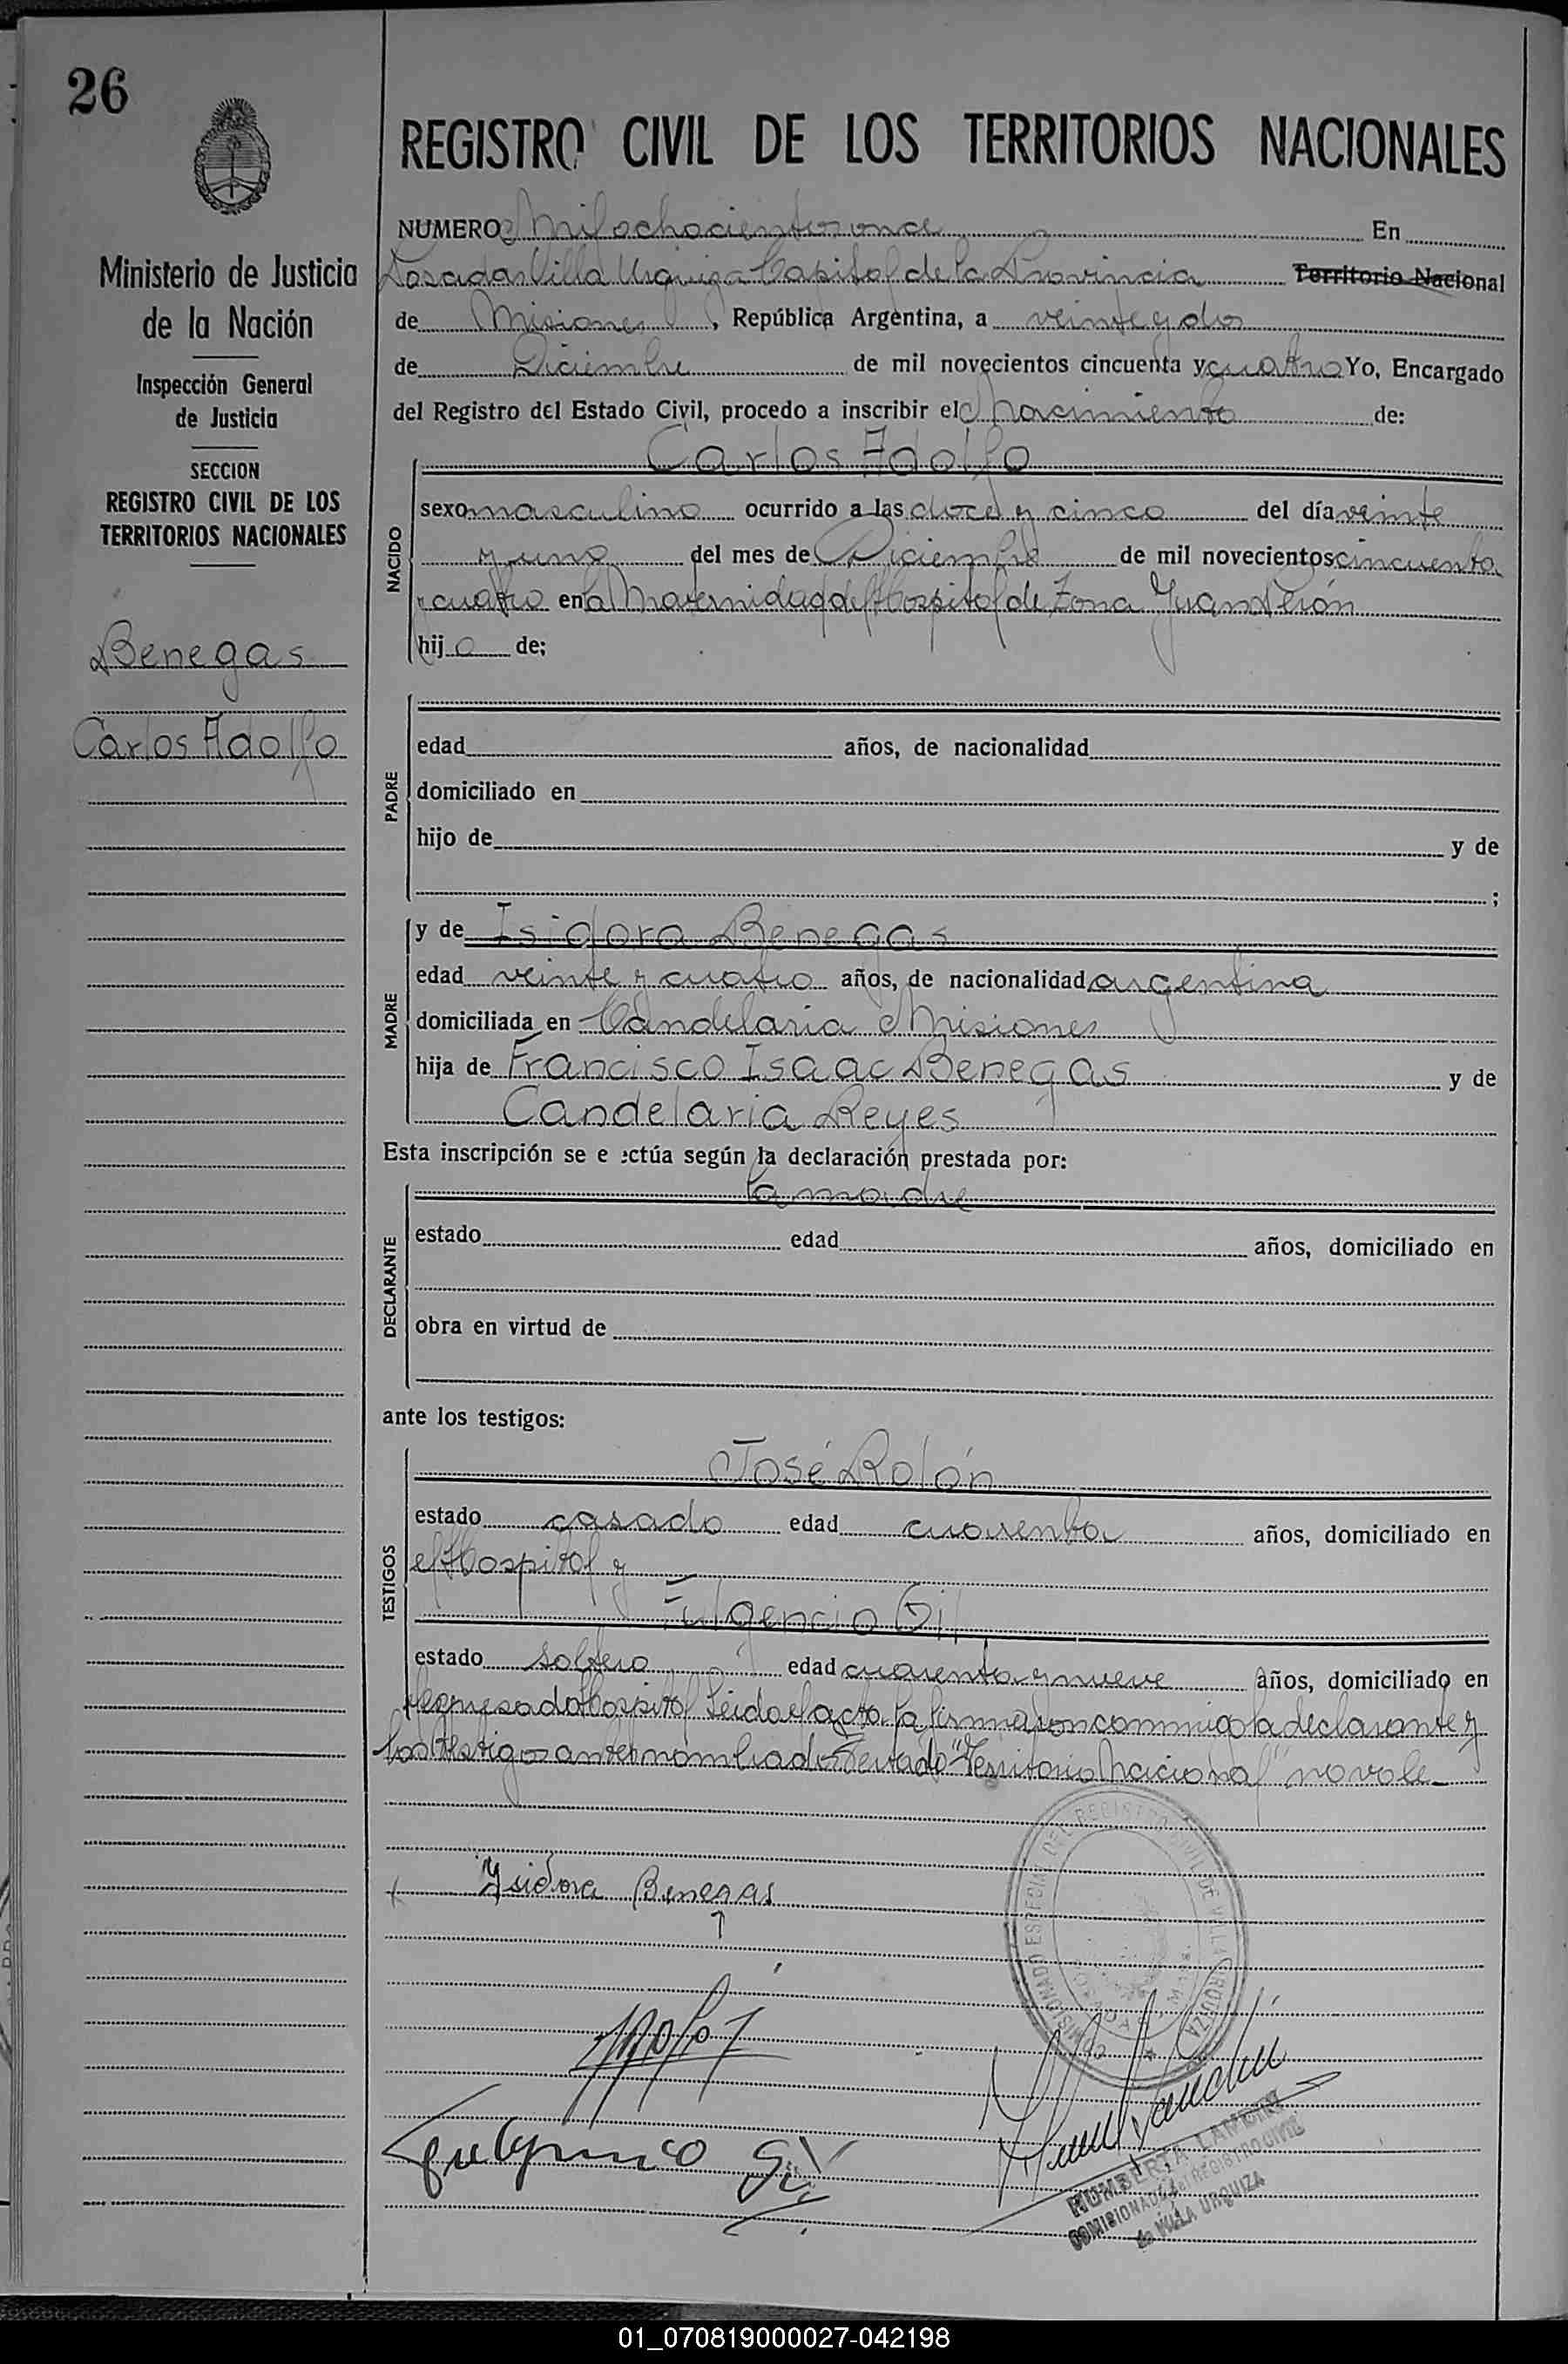 26
REGISTRO CIVIL DE LOS TERRITORIOS NACIONALES
Ministerio de Justicia
de la Nación
Inspección General
de Justicia
SECCION
REGISTRO CIVIL DE LOS
TERRITORIOS NACIONALES
Benegas
Carlos Adolfo
NUMERO Mil ochocientos once En
Posadas Villa Urquiza Capital de la Provincia Territorio Nacional
de Misiones, República Argentina, a veinte y dos
de Diciembre de mil novecientos cincuenta y cuatro Yo, Encargado
del Registro del Estado Civil, procedo a inscribir el nacimiento de:
Carlos Adolfo
NACIDO
sexo masculino ocurrido a las doce y cinco del día veinte
y uno del mes de Diciembre de mil novecientos cincuenta
y cuatro en la Maternidad del Hospital de Zona Juan Perón
hijo de;
PADRE
edad años, de nacionalidad
domiciliado en
hijo de y de
;
MADRE
y de Isidora Benegas
edad veinte y cuatro años, de nacionalidad argentina
domiciliada en Candelaria Misiones
hija de Francisco Isaac Benegas y de
Candelaria Reyes
Esta inscripción se e ectúa según la declaración prestada por:
la madre
DECLARANTE
estado edad años, domiciliado en
obra en virtud de
ante los testigos:
TESTIGOS
José Rolón
estado casado edad cuarenta años, domiciliado en
el Hospital y
Fulgencio Gil
estado soltero edad cuarenta y nueve años, domiciliado en
el expresado Hospital Leída el acta la firmaron conmigo la declarante y
los testigos antes nombrados Testado "Territorio Nacional" no vale
Isidora Benegas
Fulgencio Gil
COMISIONADO ESPECIAL DEL REGISTRO CIVIL DE VILLA URQUIZA
HUMBERTA LANDINI
COMISIONADO del REGISTRO CIVIL
de VILLA URQUIZA
01_070819000027-042198